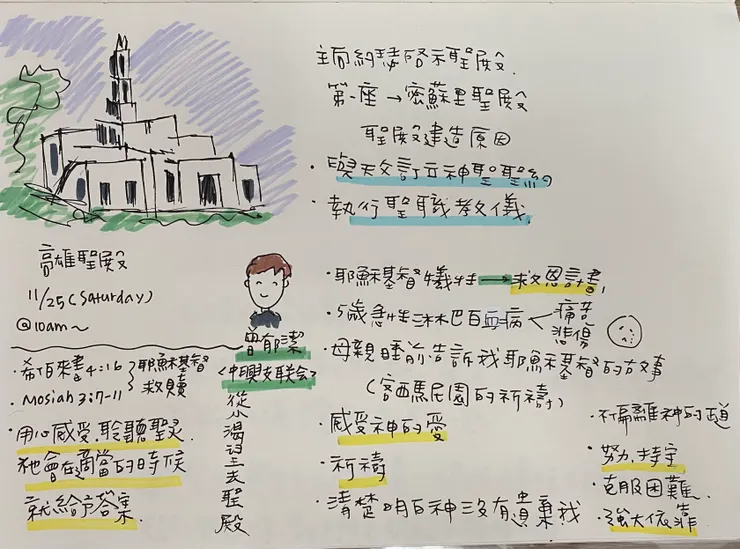 主向約瑟啟示聖殿
第一座→密蘇里聖殿
聖殿建造原因
· 與天父訂立神聖聖約
· 執行聖職教儀
高雄聖殿
11/25 (Saturday)
@10am~
· 希伯來書 4:16
· Mosiah 3:7-11
} 耶穌基督
救贖
· 用心感受.聆聽聖灵
祂會在適當的時候
就給予答案.
曾郁潔
<中興支联会>
從小渴望去聖殿
· 耶穌基督犧牲→救恩計畫,
· 5歲急性淋巴白血病 < 痛苦
悲傷
· 母親睡前告訴我耶穌基督的故事
(客西馬尼園的祈禱)
· 感受神的愛
· 祈禱
· 清楚明白神沒有遺棄我
· 不偏離神的道
· 努力持守
· 克服困難.
· 強大依靠